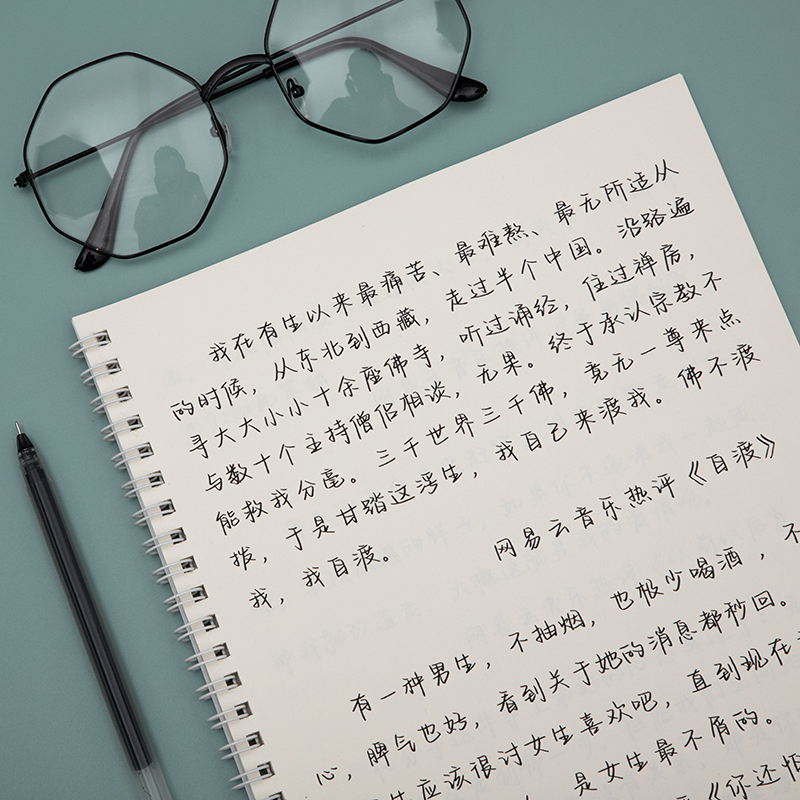 我在有生以来最痛苦、最难熬、最无所适从
的时候，从东北到西藏，走过半个中国。沿路遍
寻大大小小十余座佛寺，听过诵经，住过禅房，
与数十个主持僧侣相谈，无果。终于承认宗教不
能救我分毫。三千世界三千佛，竟无一尊来点
拨，于是甘踏这浮生，我自己来渡我。佛不渡
我，我自渡。
网易云音乐热评《自渡》
有一种男生，不抽烟，也极少喝酒，不
心，脾气也好，看到关于她的消息都秒回。
生应该很讨女生喜欢吧，直到现在
，是女生最不屑的。
《你还怕